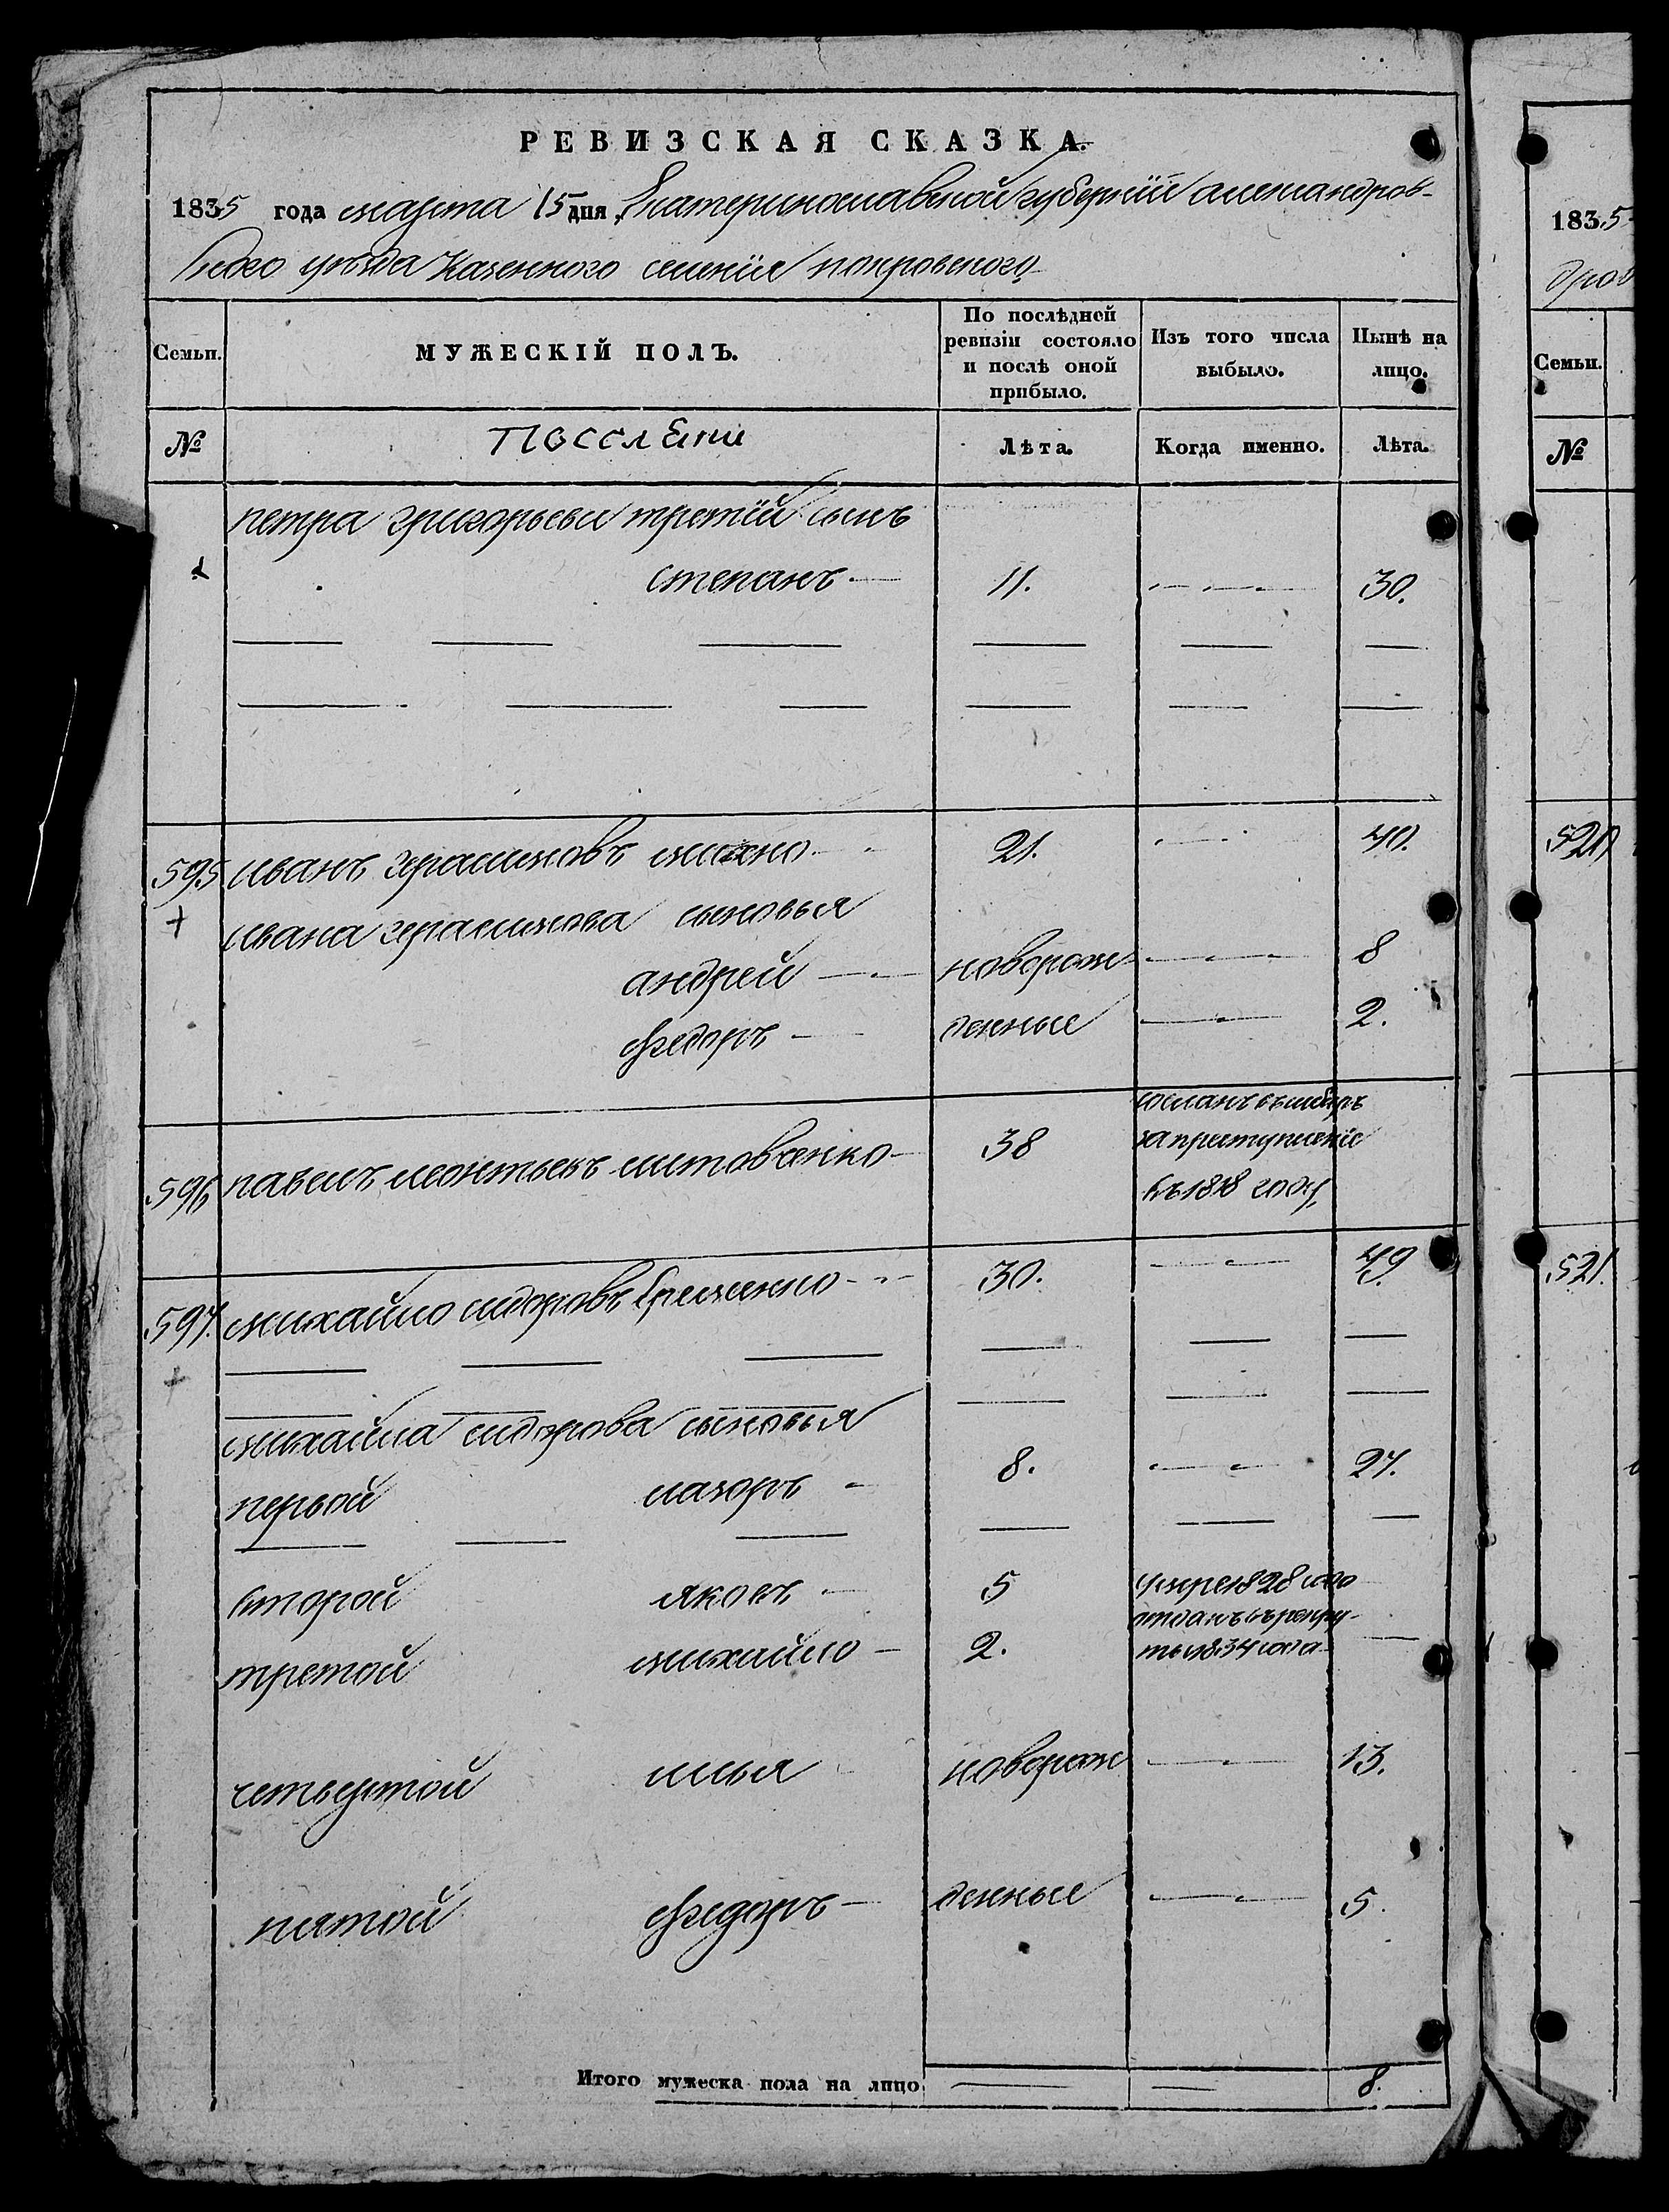 РЕВИЗСКАЯ СКАЗКА.
1835 года марта 15 дня, Екатеринославской губернїи александров-
скаго уѣзда Казенного селенїя покровского
Семьи. МУЖЕСКІЙ ПОЛЪ. По послѣдней ревизіи состояло и послѣ оной прибыло. Изъ того числа выбыло. Нынѣ на лицо.
№ Поселяни Лѣта. Когда именно. Лѣта.
петра григорьева третїй сынъ
степанъ 11. 30.
595 иванъ герасимовъ 21. 40.
ивана герасимова сыновья
андрей новорож 8
федоръ денные 2.
596 павелъ леонтьевъ литовченко 38 сосланъ въ сибиръ
за приступленїе
въ 1818 году
597. михайло сидоровъ Еременко 30. 49
михайла сидорова сыновья
первой лазоръ 8. 27.
второй яковъ 5 умре 1828 года
третой михайло 2. отданъ въ рекру-
ты 1834 года
четвертой илья новорож 13.
пятой федоръ денные 5.
Итого мужеска пола на лицо. 8.
1835
дров
Семьи.
№
520
521.